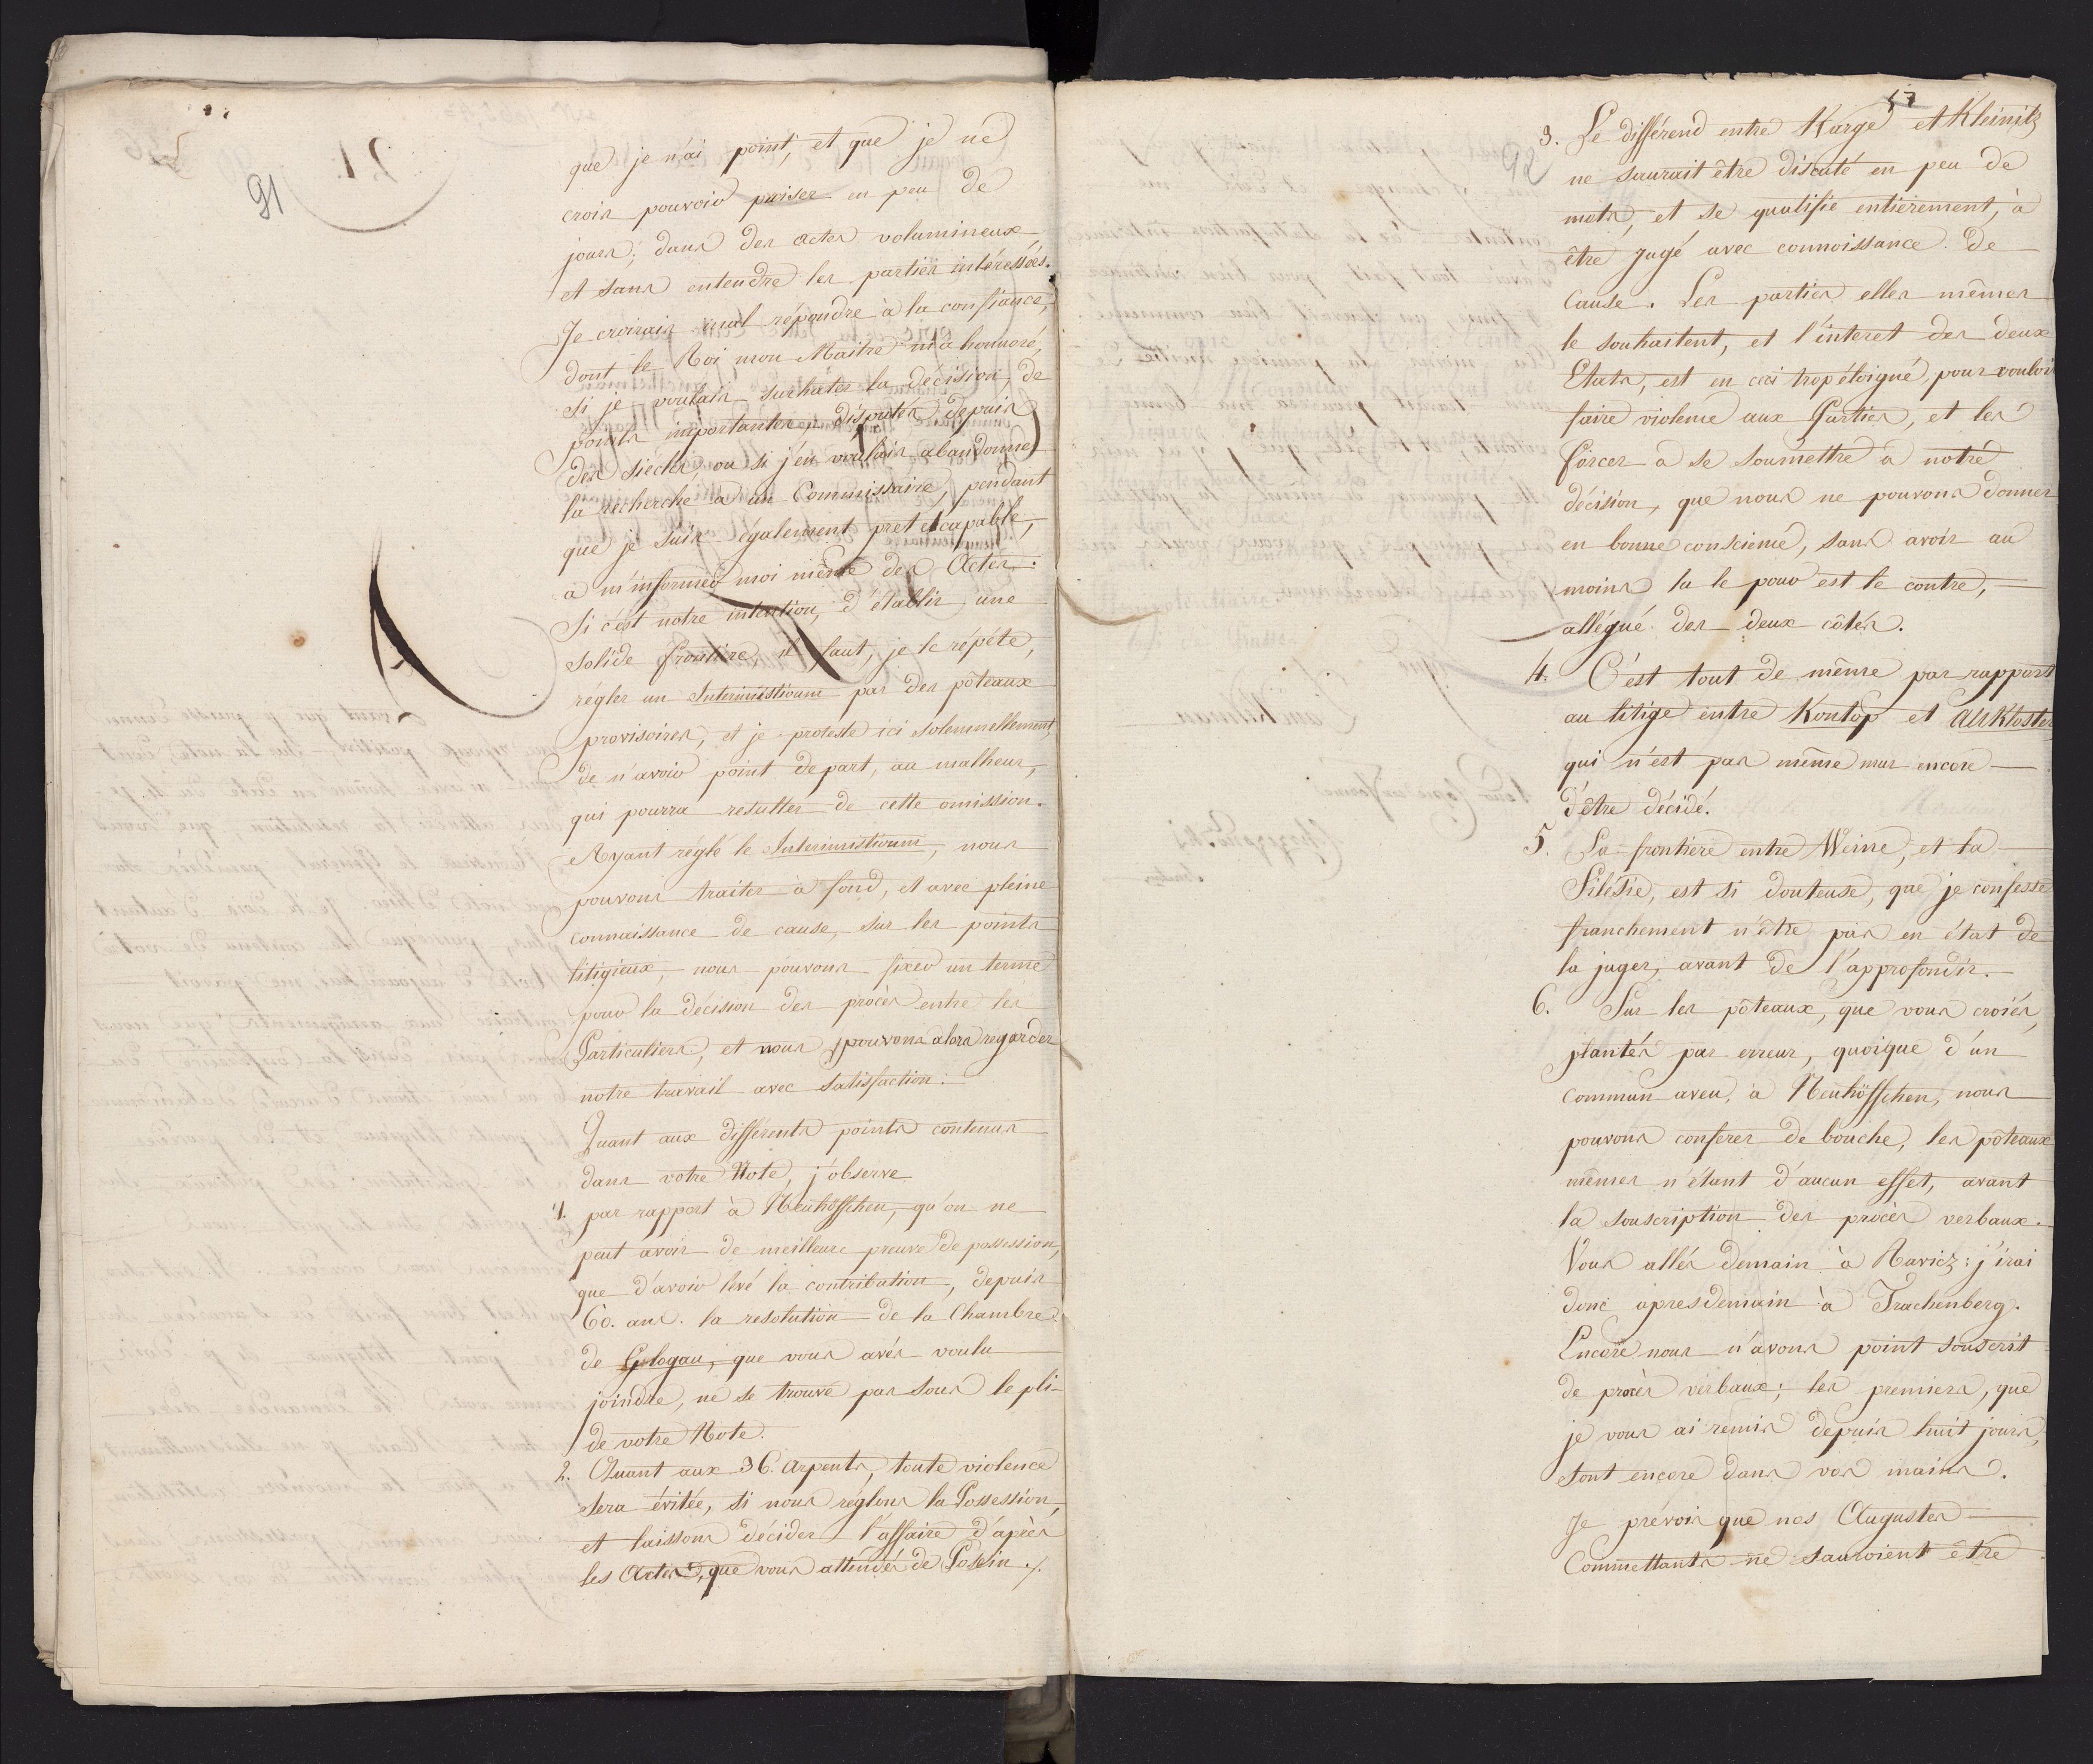 91
que je n'ai point, et que je ne
crois pouvoir puiser en peu de
jours, dans des actes volumineux
et sans entendre les partiës intéressées.
Je croirais mal répondre à la confiance,
dont le Roi, mon Maitre m'a honnoré,
si je voulais surhater la décision, de
points importants, disputés depuis
des siécles, ou si j'en voulais abandonner
la recherche à un Commissaire, pendant
que je suis également pret et capable,
à m'informer moi même des Actes.
Si c'ést notre intention, d'établir une
solide frontiere, il faut, je le repéte,
régler un Interimisticum par des pôteaux
provisoires, et je proteste ici solemnellement,
de n'avoir point de part, au malheur,
qui pourra resulter de cette omission.
Ayant réglé le Interimisticum, nous
pouvons traiter à fond, et avec pleine
connaissance de cause, sur les points
litigieux, nous pouvons fixer un terme
pour la décision des procès entre les
Particuliers, et nous pouvons alors regarder
notre travail avec satisfaction.
Quant aux différents points contenus
dans votre Note, j'observe
1. par rapport à Neuhöffchen, qu'on ne
peut avoir de meilleure preuve de possession,
que d'avoir levé la contribution, depuis
60. ans. la resolution de la Chambre
de Glogau, que vous avés voulu
joindre, ne se trouve pas sous le pli
de votre Note.
2. Quant aux 36. Arpents, toute violence
sera évitée, si nous réglons la Possession,
et laissons décider l'affaire d'après
les Actes, que vous attendés de Posen ./.
57
92
3. Le différend entre Karge et Kleinitz
ne saurait être discuté en peu de
mots, et se qualifie entierement, à
être jugé avec connoissance de
Cause. Les parties elles mêmes
le souhaitent, et l'interet des deux
Etats, est en ceci trop éloigné, pour vouloir
faire violence aux Parties, et les
forcer à se soumettre à notre
décision, que nous ne pouvons donner
en bonne conscience, sans avoir au
moins lu le pour est le contre,
allégué des deux côtés.
4. C'ést tout de même par rapport
au litige entre Kontop et AltKloster
qui n'ést pas même mur encore
d'être décidé.
5. La frontiere entre Weine, et la
Silésie, est si douteuse, que je confesse
franchement n'être pas en état de
la juger, avant de l'approfondir.
6. Sur les pôteaux, que vous croiés,
plantés par erreur, quoique d'un
commun aveu, à Neuhöffchen, nous
pouvons conferer de bouche, les pôteaux
mêmes n'étant d'aucun effet, avant
la souscription des procès verbaux.
Vous allés demain à Ravicz: j'irai
donc apresdemain à Trachenberg.
Encore nous n'avons point souscrit
de procès verbaux; les premiers, que
je vous ai remis depuis huit jours,
sont encore dans vos mains.
Je prévois que nos Augustes
Commettants ne sauroient être